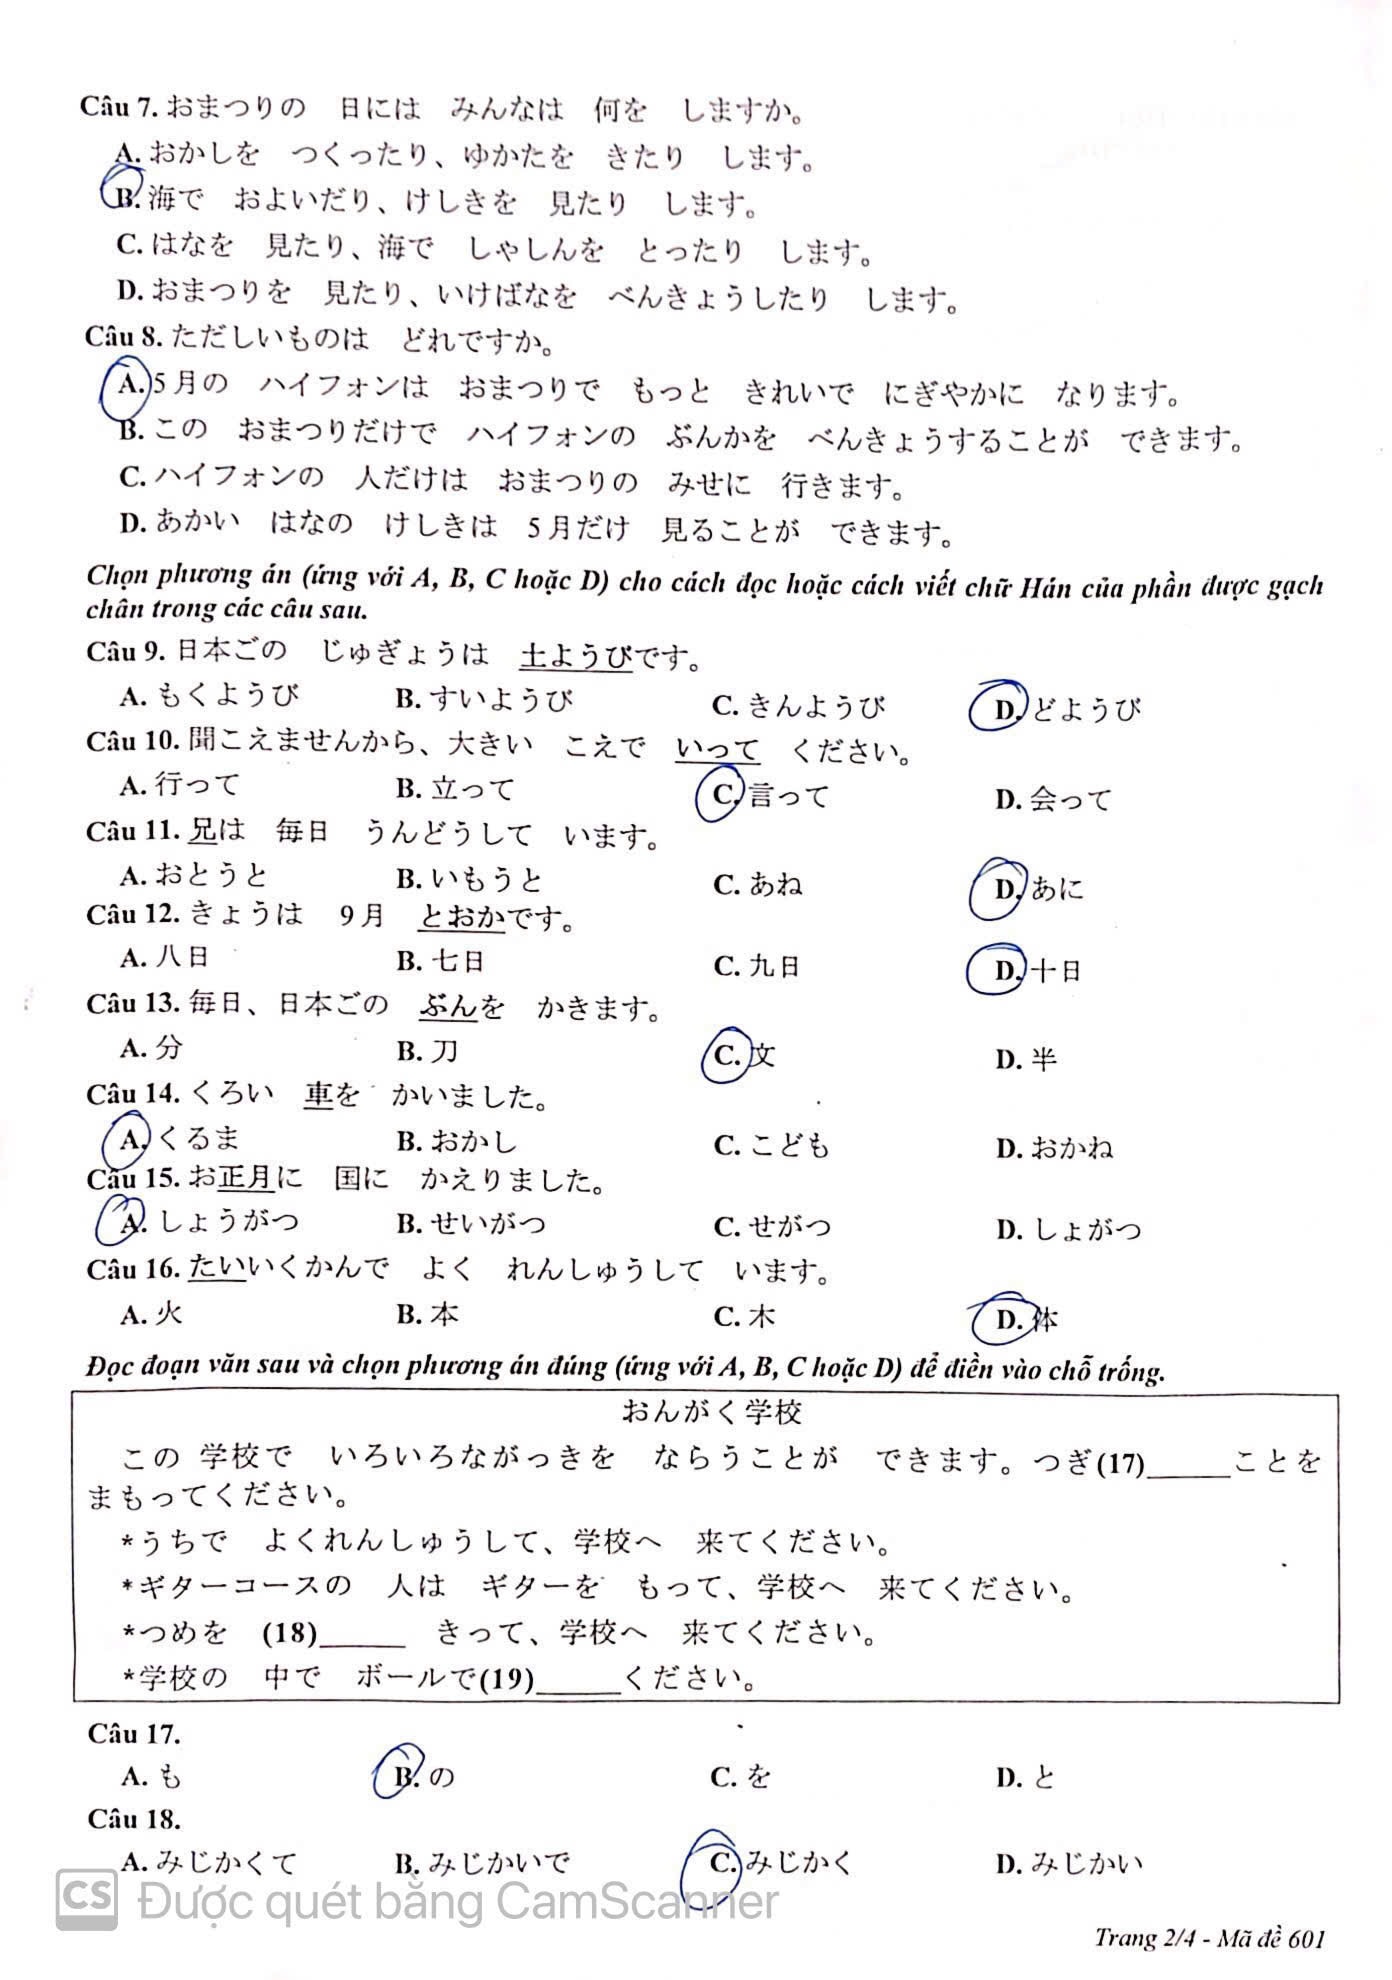 Câu 7. おまつりの 日には みんなは 何を しますか。
A. おかしを つくったり、ゆかたを きたり します。
B. 海で およいだり、けしきを 見たり します。
C. はなを 見たり、海で しゃしんを とったり します。
D. おまつりを 見たり、いけばなを べんきょうしたり します。
Câu 8. ただしいものは どれですか。
A. 5月の ハイフォンは おまつりで もっと きれいで にぎやかに なります。
B. この おまつりだけで ハイフォンの ぶんかを べんきょうすることが できます。
C. ハイフォンの 人だけは おまつりの みせに 行きます。
D. あかい はなの けしきは 5月だけ 見ることが できます。
Chọn phương án (ứng với A, B, C hoặc D) cho cách đọc hoặc cách viết chữ Hán của phần được gạch
chân trong các câu sau.
Câu 9. 日本ごの じゅぎょうは 土ようびです。
A. もくようび B. すいようび C. きんようび D. どようび
Câu 10. 聞こえませんから、大きい こえで いって ください。
A. 行って B. 立って C. 言って D. 会って
Câu 11. 兄は 毎日 うんどうして います。
A. おとうと B. いもうと C. あね D. あに
Câu 12. きょうは 9月 とおかです。
A. 八日 B. 七日 C. 九日 D. 十日
Câu 13. 毎日、日本ごの ぶんを かきます。
A. 分 B. 刀 C. 文 D. 半
Câu 14. くろい 車を かいました。
A. くるま B. おかし C. こども D. おかね
Câu 15. お正月に 国に かえりました。
A. しょうがつ B. せいがつ C. せがつ D. しょがつ
Câu 16. たいいくかんで よく れんしゅうして います。
A. 火 B. 本 C. 木 D. 体
Đọc đoạn văn sau và chọn phương án đúng (ứng với A, B, C hoặc D) để điền vào chỗ trống.
おんがく学校
この 学校で いろいろながっきを ならうことが できます。つぎ(17)______ことを
まもってください。
*うちで よくれんしゅうして、学校へ 来てください。
*ギターコースの 人は ギターを もって、学校へ 来てください。
*つめを (18)______ きって、学校へ 来てください。
*学校の 中で ボールで(19)______ください。
Câu 17.
A. も B. の C. を D. と
Câu 18.
A. みじかくて B. みじかいで C. みじかく D. みじかい
CS Được quét bằng CamScanner
Trang 2/4 - Mã đề 601